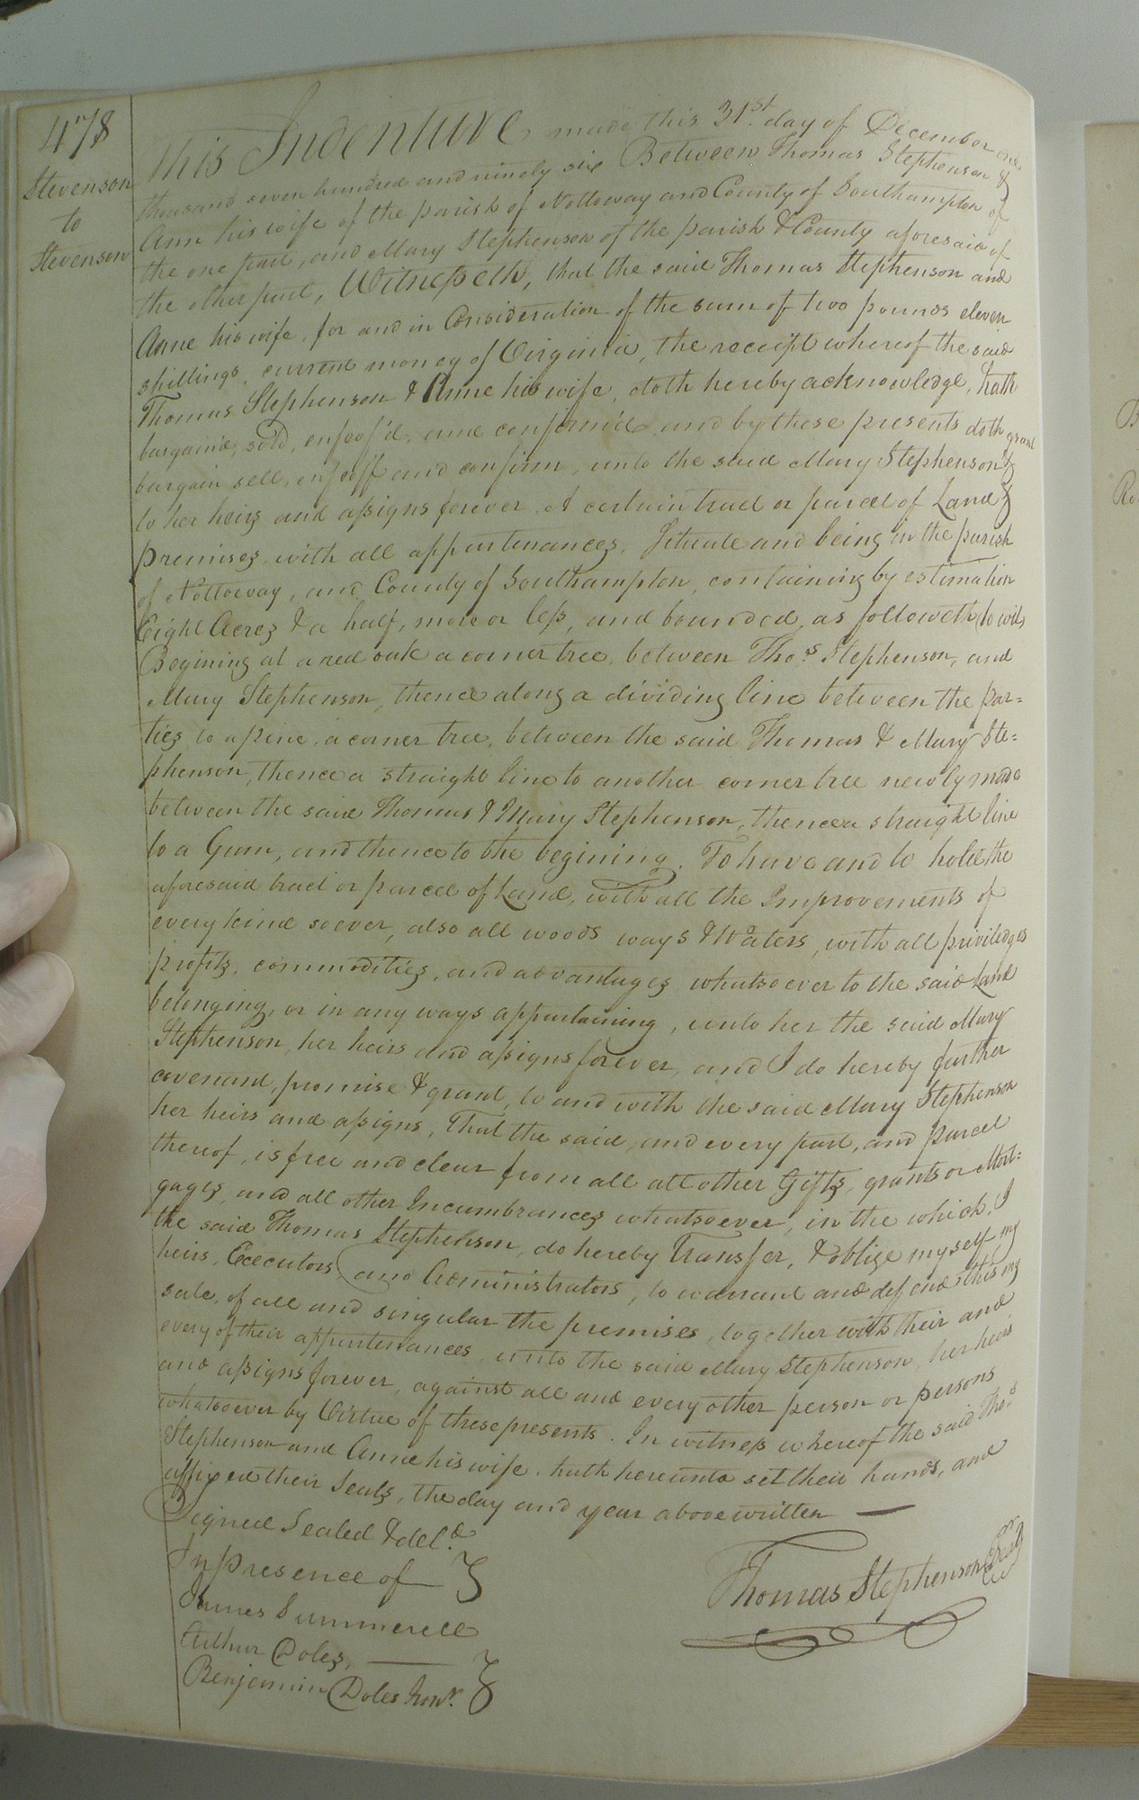 478
Stevenson
to
Stevenson
This Indenture made this 31st day of December one
thousand seven hundred and ninety six Between Thomas Stephenson &
Ann his wife of the parish of Nottoway and County of Southampton of
the one part, and Mary Stephenson of the parish & County aforesaid of
the other part, Witnesseth, that the said Thomas Stephenson and
Anne his wife, for and in Consideration of the sum of two pounds eleven
shillings, current money of Virginia, the receipt whereof the said
Thomas Stephenson & Anne his wife, doth hereby acknowledge, hath
bargain'd, sold, enfeof'd, and confirm'd, and by these presents doth grant
bargain sell, enfeoff and confirm, unto the said Mary Stephenson &
to her heirs and assigns forever, A certain tract or parcel of Land &
premises, with all appurtenances, Situate and being in the parish
of Nottoway, and County of Southampton, containing by estimation
Eight Acres & a half, more or less, and bounded, as followeth (to wit)
Begining at a red oak a corner tree, between Thos. Stephenson, and
Mary Stephenson, thence along a dividing line between the par=
ties, to a pine, a corner tree, between the said Thomas & Mary Ste=
phenson, thence a straight line to another corner tree newly made
between the said Thomas & Mary Stephenson, thence a straight line
to a Gum, and thence to the begining. To have and to hold the
aforesaid tract or parcel of Land, with all the Improvements of
every kind soever, also all woods ways & Waters, with all priviledges
profits, commodities, and advantages whatsoever to the said Land
belonging, or in any ways appurtaining, unto her the said Mary
Stephenson, her heirs and assigns forever, and I do hereby further
covenant, promise & grant, to and with the said Mary Stephenson
her heirs and assigns, That the said, and every part, and parcel
thereof, is free and clear from all all other Gifts, grants or Mort=
gages, and all other Incumbrances whatsoever, in the which, I
the said Thomas Stephenson, do hereby Transfer, & oblige myself my
heirs, Executors, and Administrators, to warrant and defend this my
sale, of all and singular the premises, together with their and
every of their appurtenances, unto the said Mary Stephenson, her heirs
and assigns forever, against all and every other person or persons
whatsoever by Virtue of these presents. In witness whereof the said Thos.
Stephenson and Anne his wife, hath hereunto set their hands, and
affixed their Seals, the day and year above written
Signed Sealed & deld.
In presence of
James Summerell
Arthur Doles,
Benjamin Doles Junr.
Thomas Stephenson